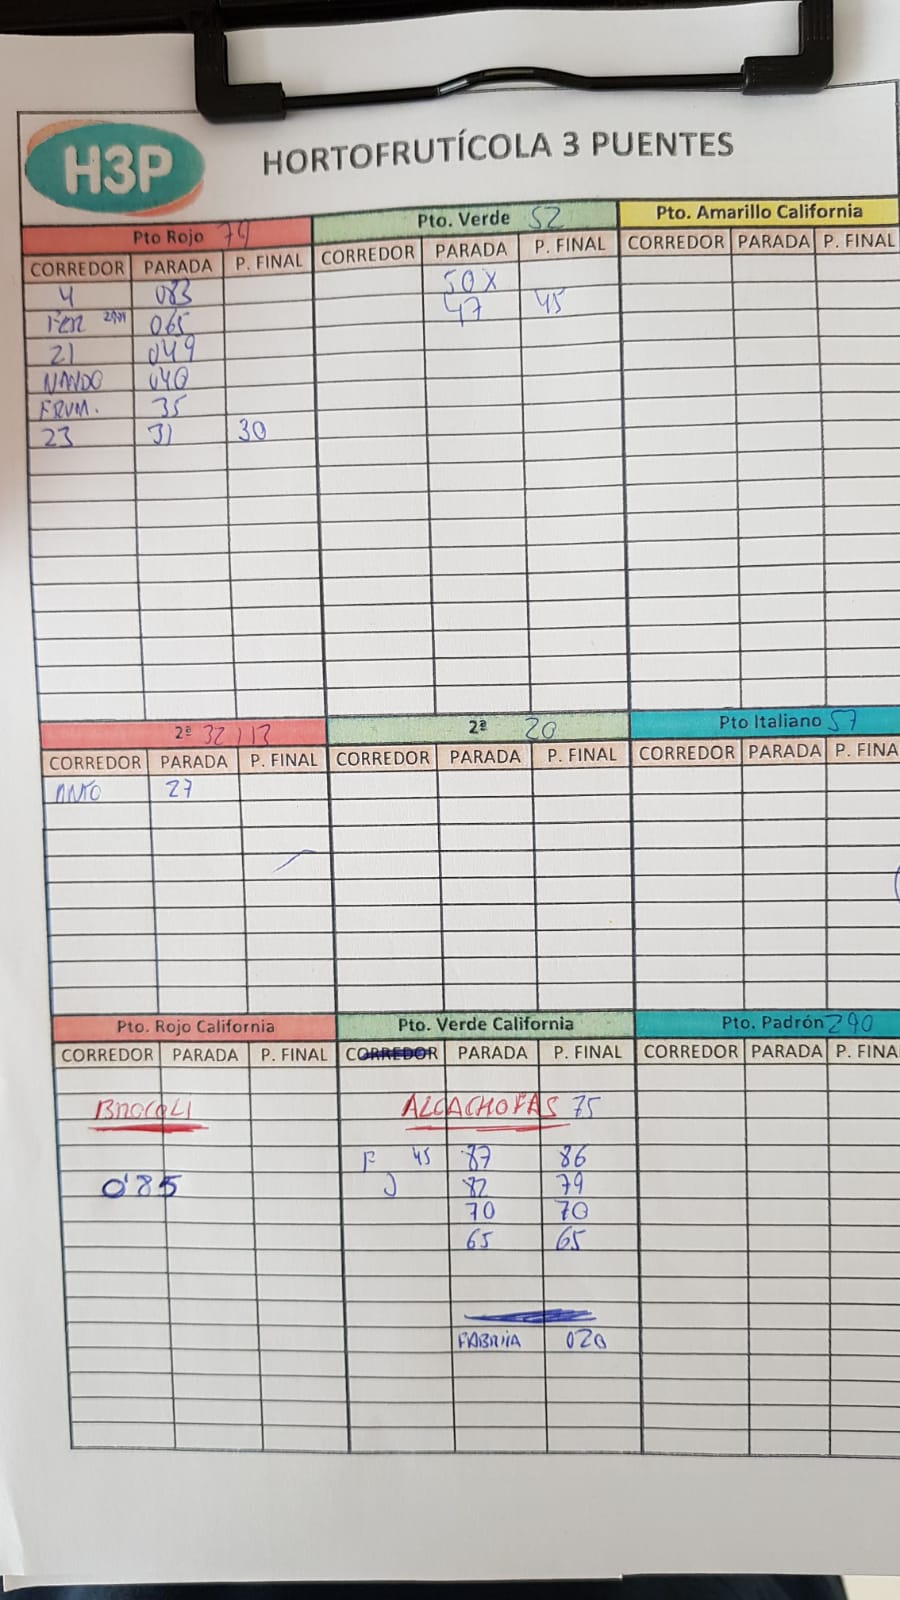 H3P HORTOFRUTÍCOLA 3 PUENTES
Pto Rojo 79
CORREDOR PARADA P. FINAL
4 083
065
21 049
NANDO 040
FRUM. 35
23 31 30
Pto. Verde 52
CORREDOR PARADA P. FINAL
50X
47 45
Pto. Amarillo California
CORREDOR PARADA P. FINAL
2ª 32 / 13
CORREDOR PARADA P. FINAL
ANTO 27
2ª 20
CORREDOR PARADA P. FINAL
Pto Italiano 57
CORREDOR PARADA P. FINA
Pto. Rojo California
CORREDOR PARADA P. FINAL
BROCOLI
0'85
Pto. Verde California
CORREDOR PARADA P. FINAL
ALCACHOFAS 75
F 45 87 86
J 82 79
70 70
65 65
FABRIIA 020
Pto. Padrón 290
CORREDOR PARADA P. FINA